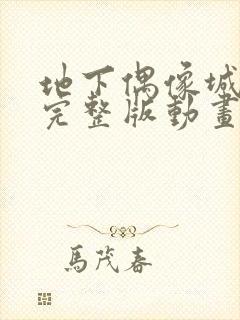 地下偶像城
完整版動畫
馬茂春